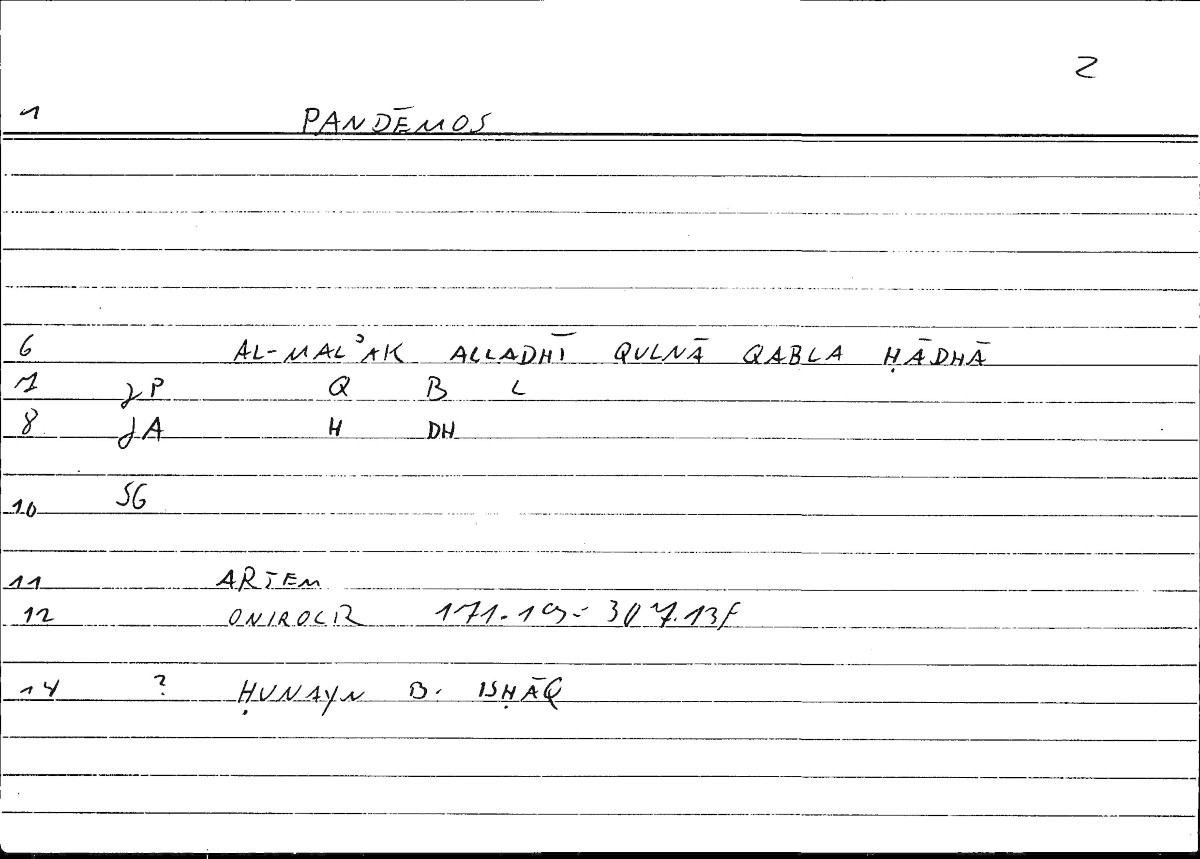 2
1 PANDĒMOS
6 AL-MALʾAK ALLADHĪ QULNĀ QABLA ḤĀDHĀ
7 JP Q B L
8 JA H DH
10 SG
11 ARTEM
12 ONIROCR 171.19 = 307.13f
14 ? ḤUNAYN B. ISḤĀQ